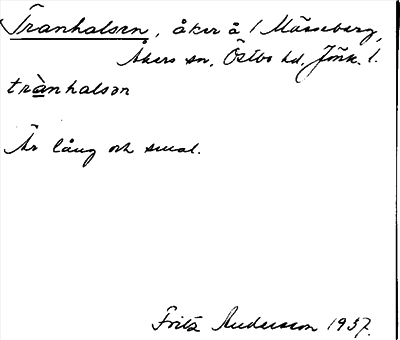 Tranhalsen, åker å 1 Måsseberg,
Åkers sn. Östbo hd. Jönk. l.
trànhalsən
Är lång och smal.
Fritz Andersson 1937.